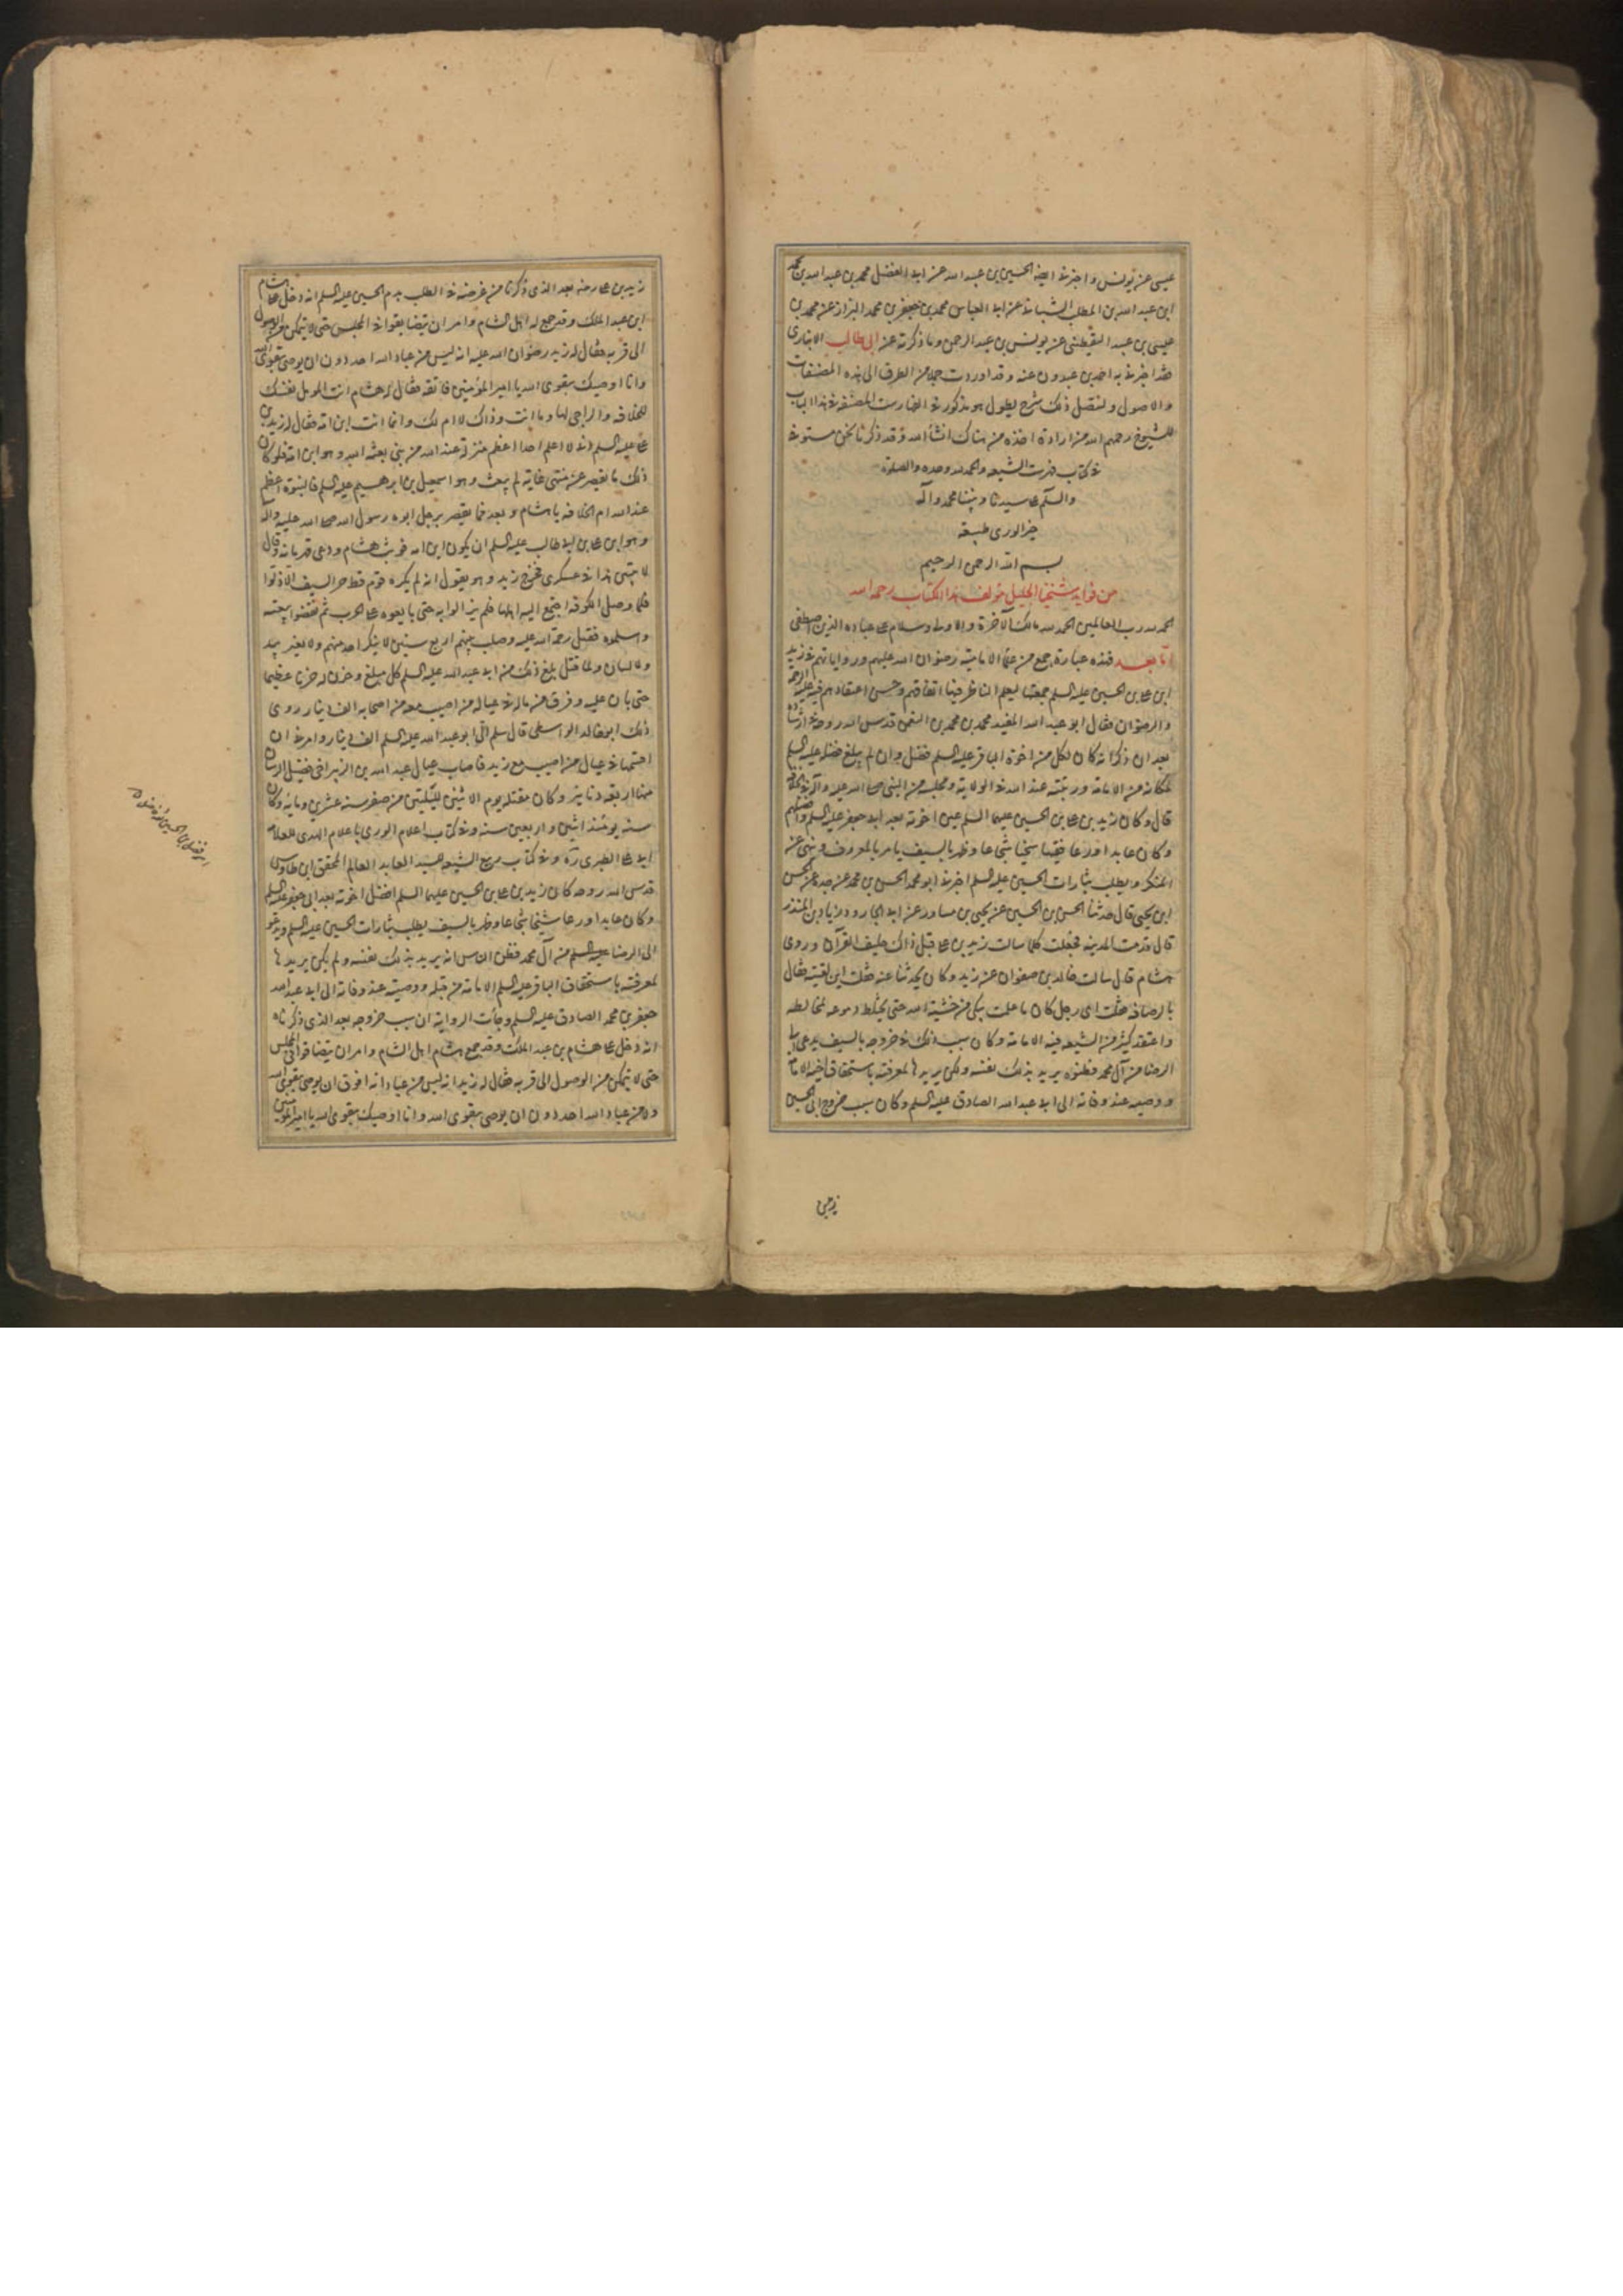 عيسى عن يونس واخبرنا ايضا الحسين بن عبيد الله عن ابي المفضل محمد بن عبد الله بن محمد
ابن عبيد الله بن المطلب الشيباني عن ابي العباس محمد بن جعفر بن محمد البزاز عن محمد بن
عيسى بن عبيد اليقطيني عن يونس بن عبد الرحمن وما ذكرته عن ابي طالب الانباري
فقد اخبرنا به احمد بن عبدون عنه وقد اوردت جملا من الطرق الى هذه المصنفات
والاصول ولتفصيل ذلك شرح يطول هو مذكور في الفهارست المصنفة في هذا الباب
للشيوخ رحمهم الله من اراده اخذه من هناك انشا الله وقد ذكرنا نحن مستوفى
في كتاب فهرست الشيعه والحمد لله وحده والصلوة
والسلم على سيدنا ونبينا محمد وآله
خير الورى طبقه
بسم الله الرحمن الرحيم
من فوايد شيخنا الجليل مؤلف هذا الكتاب رحمه الله
الحمد لله رب العالمين الحمد لله مالك الآخرة والاولى وسلام على عباده الذين اصطفى
اما بعد فهذه عبارة جمع من علماء الامامية رضوان الله عليهم ورواياتهم في زيد
ابن علي بن الحسين عليه السلم جمعتها ليعلم الناظر فيها اتفاقهم وحسن اعتقادهم فيه عليه الرحمه
والرضوان فقال ابو عبد الله المفيد محمد بن محمد بن النعمن قدس الله روحه في ارشاده
بعد ان ذكر انه كان لكل من اخوة الباقر عليه السلم فضل وان لم يبلغ فضله عليه السلم
لمكانه من الامامة ورتبته عند الله في الولاية ومحله من النبي صلى الله عليه وآله في الخلافة
قال وكان زيد بن علي بن الحسين عليهما السلم عين اخوته بعد ابي جعفر عليه السلم وافضلهم
وكان عابدا ورعا فقيها سخيا شجاعا وظهر بالسيف يامر بالمعروف وينهى عن
المنكر ويطلب بثارات الحسين عليه السلم اخبرنا ابو محمد الحسن بن محمد عن جده عن الحسن
ابن يحيى قال حدثنا الحسن بن الحسين عن يحيى بن مساور عن ابي الجارود زياد بن المنذر
قال قدمت المدينه فجعلت كلما سالت زيد بن علي قيل ذاك حليف القرآن وروى
هشام قال سالت خالد بن صفوان عن زيد وكان يحدثنا عنه فقلت اين لقيته فقال
بالرصافه فقلت اى رجل كان ما علمت يبكى من خشية الله حتى يختلط دموعه لمخالطه
واعتقد كثير من الشيعه فيه الامامة وكان سبب ذلك في خروجه بالسيف يدعى الى
الرضا من آل محمد فظنوه يريد بذلك نفسه ولم يكن يريدها لمعرفته باستحقاق اخيه الامامة
ووصيه عند وفاته الى ابي عبد الله الصادق عليه السلم وكان سبب خروج ابى الحسين
زيد بن علي رضه بعد الذى ذكرناه من غرضه في الطلب بدم الحسين عليه السلم انه دخل على هشام
ابن عبد الملك وقد جمع له اهل الشام وامر ان يتضايقوا في المجلس حتى لا يتمكن من الوصول
الى قربه فقال له زيد رضوان الله عليه انه ليس من عباد الله احد دون ان يوصى بتقوى الله
وانا اوصيك بتقوى الله يا امير المؤمنين فاتقه فقال له هشام انت المؤهل نفسك
للخلافه والراجى لها وما انت وذاك لا ام لك وانما انت ابن امة فقال له زيد بن
علي عليه السلم انى لا اعلم احدا اعظم منزلة عند الله من نبي بعثه الله وهو ابن امة فلو كان
ذلك ما يقصر عن منتهى غاية لم يبعث وهو اسمعيل بن ابرهيم عليه السلم فالنبوة اعظم
عند الله ام الخلافه يا هشام وبعد فما يقصر برجل ابوه رسول الله صلى الله عليه وآله
وهو ابن علي بن ابي طالب عليه السلم ان يكون ابن امه فوثب هشام ودعى قهرمانه وقال
لا يبيتن هذا في عسكرى فخرج زيد وهو يقول انه لم يكره قوم قط حر السيف الا ذلوا
فلما وصل الكوفه اجتمع اليه اهلها فلم يزالوا به حتى بايعوه على الحرب ثم نقضوا بيعته
واسلموه فقتل رحمة الله عليه وصلب بينهم اربع سنين لا ينكر احد منهم ولا يغير بيد
ولا لسان ولما قتل بلغ ذلك من ابي عبد الله عليه السلم كل مبلغ وحزن له حزنا عظيما
حتى بان عليه وفرق من ماله في عيال من اصيب معه من اصحابه الف دينار روى
ذلك ابو خالد الواسطى قال سلم الي ابو عبد الله عليه السلم الف دينار وامرنى ان
اقسمها في عيال من اصيب مع زيد فاصاب عيال عبد الله بن الزبير اخى فضيل الرسان
منها اربعة دنانير وكان مقتله يوم الاثنين لليلتين من صفر سنه عشرين ومايه وكان
سنه يومئذ اثنين واربعين سنه وفي كتاب اعلام الورى باعلام الهدى للعلامه
ابي علي الطبرى ره وفي كتاب ربيع الشيعه للسيد العابد العالم المحقق ابن طاوس
قدس الله روحه كان زيد بن علي بن الحسين عليهما السلم افضل اخوته بعد ابي جعفر عليه السلم
وكان عابدا ورعا سخيا شجاعا وظهر بالسيف يطلب بثارات الحسين عليه السلم ويدعو
الى الرضا عليه السلم من آل محمد فظن الناس انه يريد بذلك نفسه ولم يكن يريدها
لمعرفته باستحقاق الباقر عليه السلم الامامة من قبله ووصيته عند وفاته الى ابي عبد الله
جعفر بن محمد الصادق عليه السلم وجأت الرواية ان سبب خروجه بعد الذى ذكرناه
انه دخل على هشام بن عبد الملك وقد جمع هشام اهل الشام وامر ان يتضايقوا في المجلس
حتى لا يتمكن من الوصول الى قربه فقال له زيد انه ليس من عباد الله افوق ان يوصى بتقوى الله
ولا من عباد الله احد دون ان يوصى بتقوى الله وانا اوصيك بتقوى الله يا امير المؤمنين